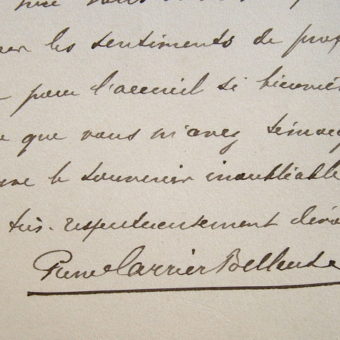 vous
les sentiments de prof
pour l'accueil si bienvei
que vous m'avez témoig
le souvenir inoubliable
très respectueusement dévo
Pierre Carrier Belleuse